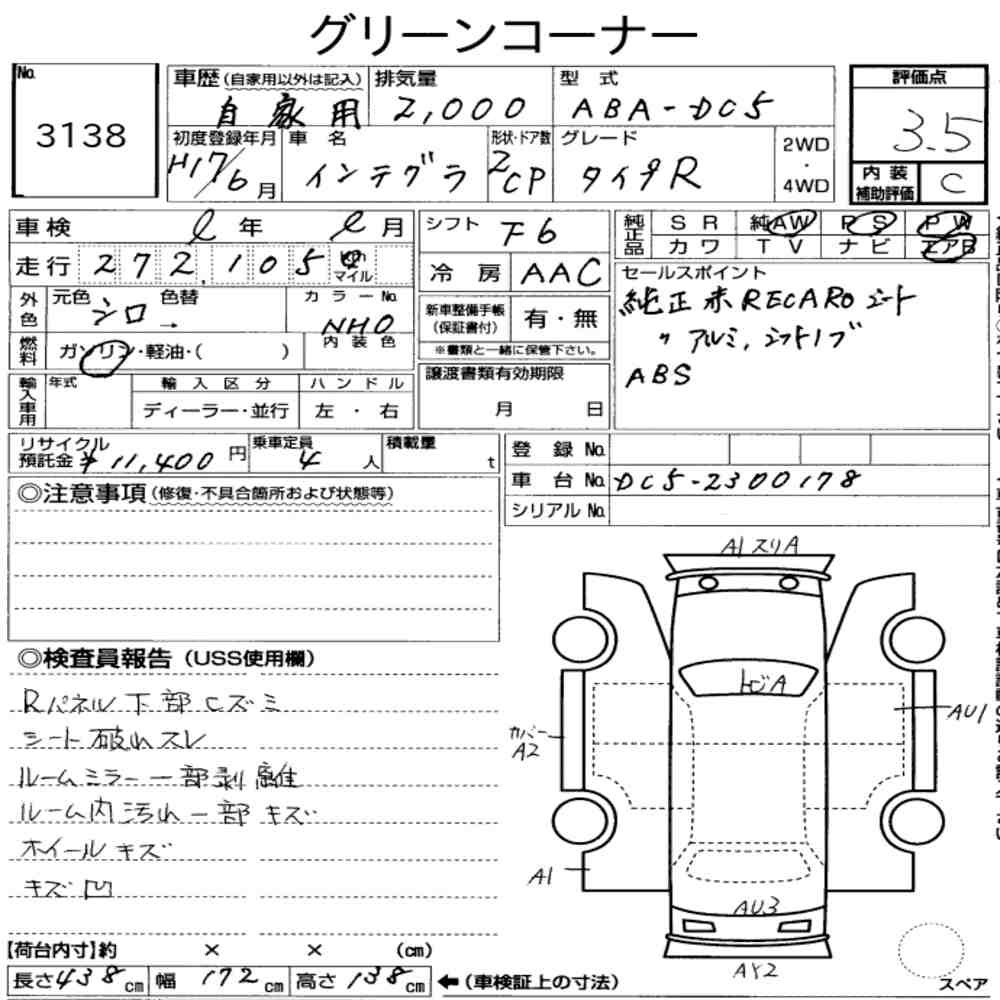 グリーンコーナー
No. 3138
車歴(自家用以外は記入) 自家用
排気量 2,000
型式 ABA-DC5
評価点 3.5
初度登録年月 H17/6月
車名 インテグラ
形状・ドア数 2 CP
グレード タイプR
2WD・4WD
内装補助評価 C
車検 年 月
走行 272,105 km マイル
シフト F6
冷房 AAC
純正品 SR 純AW PS PW
カワ TV ナビ エアB
外色 元色 シロ 色替 →
カラーNo. NH0
内装色
燃料 ガソリン・軽油・( )
新車整備手帳(保証書付) 有・無
※書類と一緒に保管下さい。
セールスポイント
純正赤RECAROシート
〃 アルミ,シフトノブ
ABS
輸入車用 年式 輸入区分 ハンドル
ディーラー・並行 左・右
譲渡書類有効期限
月 日
リサイクル預託金 ¥11,400円
乗車定員 4人
積載量 t
登録No.
車台No. DC5-2300178
シリアルNo.
◎注意事項(修復・不具合箇所および状態等)
◎検査員報告(USS使用欄)
Rパネル下部Cズミ
シート破れスレ
ルームミラー一部剥離
ルーム内汚れ一部キズ
ホイールキズ
キズ凹
A1スリA
トビA
カバーA2
AU1
A1
AU3
AY2
スペア
【荷台内寸】約 × × (cm)
長さ438cm 幅172cm 高さ138cm ←(車検証上の寸法)